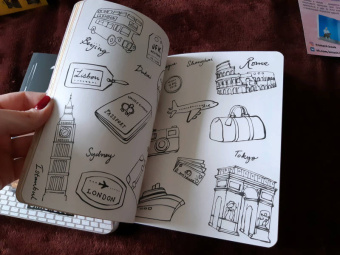 Beijing
Lisbon
Dubai
PASSPORT
Sydney
LONDON
Istanbul
Shanghai
Rome
Tokyo